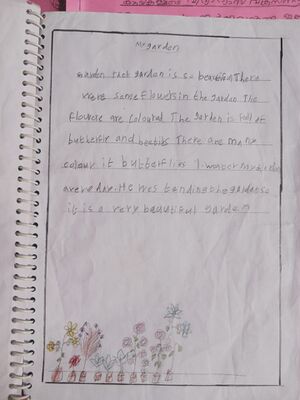 My garden
garden that garden is so beautiful There
were some flowers in the garden The
flowers are coloured The garden is full of
butterflie and beetles There are many
colour it butterflies I
are we He was tending the garden so
it is a very beautiful garden